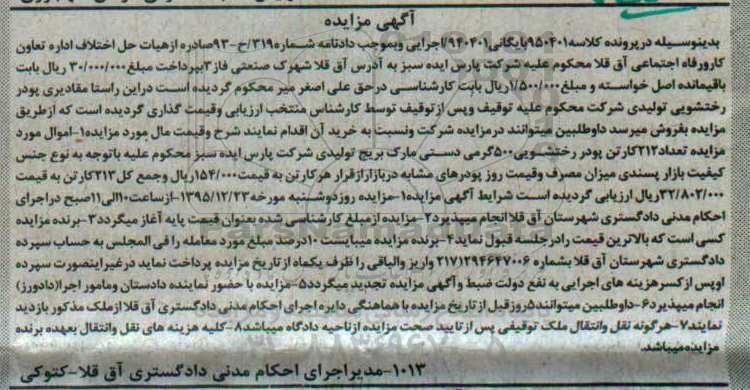 آگهی مزایده
بدینوسیله در پرونده کلاسه ۹۵۰۴۰۱بایگانی/۹۴۰۴۰۱اجرایی وبموجب دادنامه شماره ۳۱۹/خ-۹۳صادره از هیات حل اختلاف اداره تعاون
کار ورفاه اجتماعی آق قلا محکوم علیه شرکت پارس ایده سبز به آدرس آق قلا شهرک صنعتی فاز۳بپرداخت مبلغ۳۰/۰۰۰/۰۰۰ ریال بابت
باقیمانده اصل خواسته و مبلغ۱/۵۰۰/۰۰۰ریال بابت کارشناسی در حق علی اصغر میر محکوم گردیده است در این راستا مقادیری پودر
رختشویی تولیدی شرکت محکوم علیه توقیف وپس از توقیف توسط کارشناس منتخب ارزیابی وقیمت گذاری گردیده است که از طریق
مزایده بفروش میرسد داوطلبین میتوانند در مزایده شرکت ونسبت به خرید آن اقدام نمایند شرح وقیمت مال مورد مزایده۱-اموال مورد
مزایده تعداد۲۱۳کارتن پودر رختشویی۵۰۰گرمی دستی مارک بریج تولیدی شرکت پارس ایده سبز محکوم علیه باتوجه به نوع جنس
کیفیت بازار پسندی میزان مصرف وقیمت روز پودرهای مشابه در بازار از قرار هر کارتن به قیمت۱۵۴/۰۰۰ریال وجمع کل۲۱۳کارتن به قیمت
۳۲/۸۰۲/۰۰۰ریال ارزیابی گردیده است شرایط آگهی مزایده۱-مزایده روز دوشنبه مورخه ۱۳۹۵/۱۲/۲۳-از ساعت۱۰الی۱۱صبح در اجرای
احکام مدنی دادگستری شهرستان آق قلا انجام میپذیرد۲-مزایده از مبلغ کارشناسی شده بعنوان قیمت پایه آغاز میگردد۳-برنده مزایده
کسی است که بالاترین قیمت را در جلسه قبول نماید۴-برنده مزایده میبایست ۱۰درصد مبلغ مورد معامله را فی المجلس به حساب سپرده
دادگستری شهرستان آق قلا بشماره ۲۱۷۱۲۹۴۶۴۷۰۰۶ واریز والباقی را ظرف یکماه از تاریخ مزایده پرداخت نماید در غیر اینصورت سپرده
اوپس از کسر هزینه های اجرایی به نفع دولت ضبط وآگهی مزایده تجدید میگردد۵-مزایده با حضور نماینده دادستان ومامور اجرا(دادورز)
انجام میپذیرد۶-داوطلبین میتوانند۵روز قبل از تاریخ مزایده با هماهنگی دایره اجرای احکام مدنی دادگستری آق قلا از ملک مذکور بازدید
نمایند۷-هرگونه نقل وانتقال ملک توقیفی پس از تایید صحت مزایده از ناحیه دادگاه میباشد۸-کلیه هزینه های نقل وانتقال بعهده برنده
مزایده میباشد.
۱۰۱۳-مدیر اجرای احکام مدنی دادگستری آق قلا-کتوکی